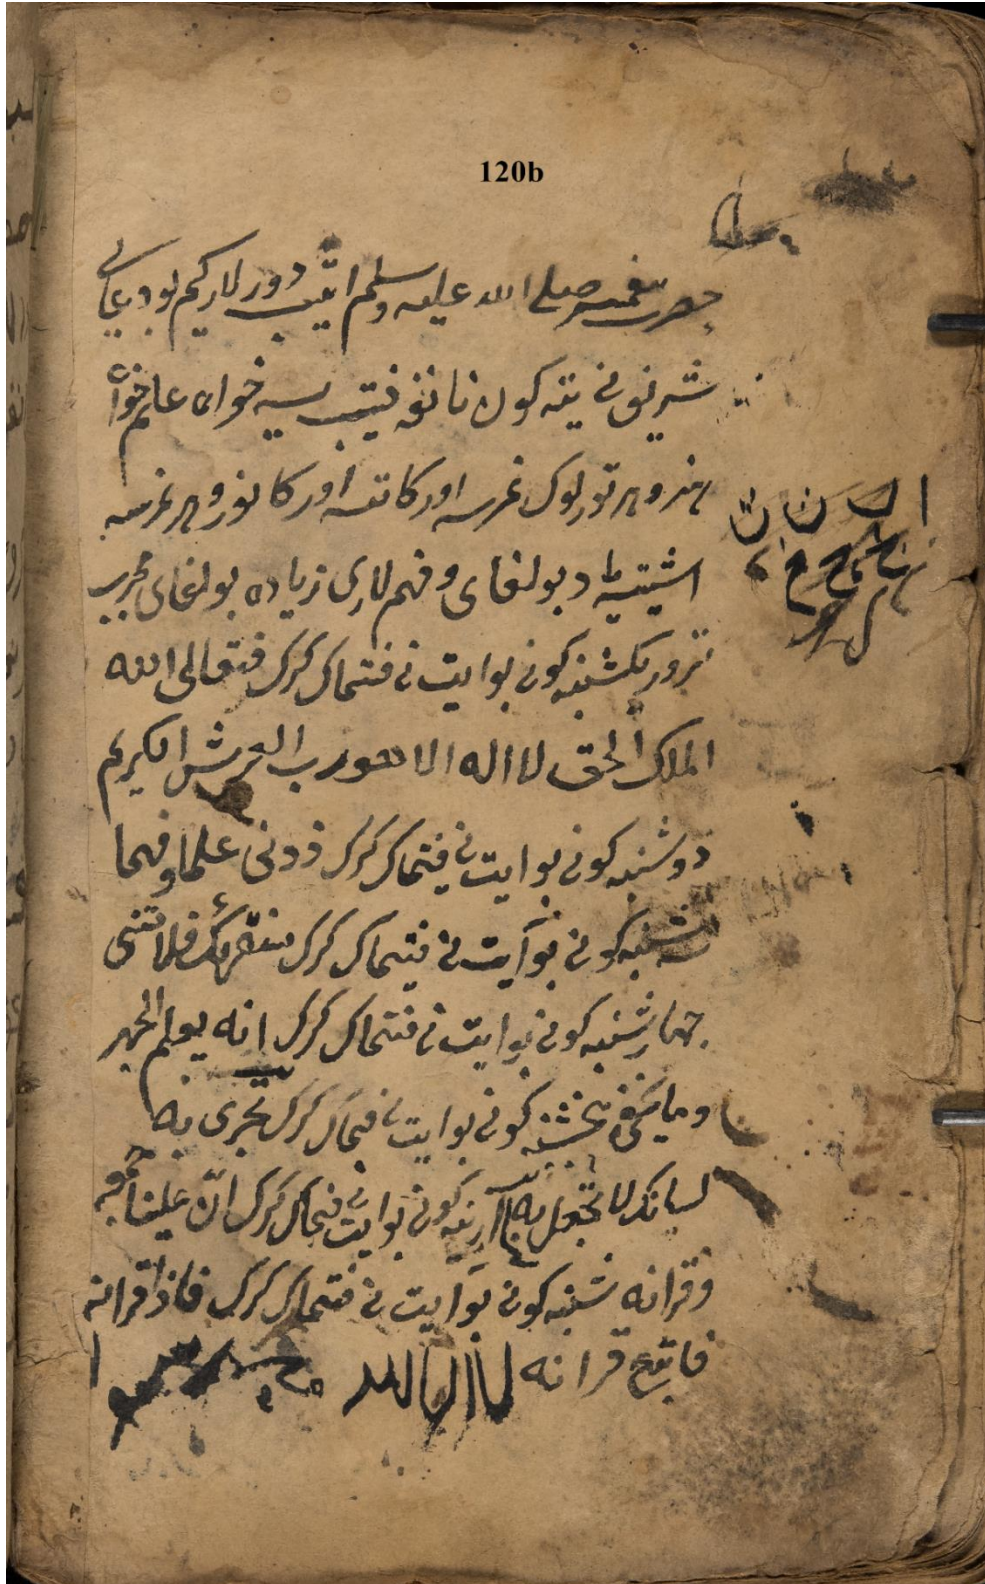 120b
حضرت پیغمبر صلی الله علیه وسلم ایتیب دورلار کیم بو دعای
شریف نی یته کون نا نغه فیتیب یسه خواه علم خواه
هنر و هر تورلوک غرسه اورکاتسه اورکانور و هر غرسه
اشیتیه یاد بولغای و فهم لاری زیاده بولغای مجرب
تورور یکشنبه کونی بو ایت نی فتماک کرک فتعالی الله
الملک الحق لا اله الا هو رب العرش الکریم
دوشنبه کونی بو ایت نی فیتماک کرک زدنی علما وفهما
سه شنبه کونی بو آیت نی فیتماک کرک سنقرئک فلا تنسی
چهارشنبه کونی بو ایت نی فتماک کرک انه یعلم الجهر
وما یخفی پنجشنبه کونی بو ایت نی فتماک کرک تحرک به
لسانک لا تعجل به آدینه کونی بو ایت نی فتماک کرک ان علینا جمعه
وقرانه شنبه کونی بو آیت نی فتماک کرک فاذا قرانه
فاتبع قرانه